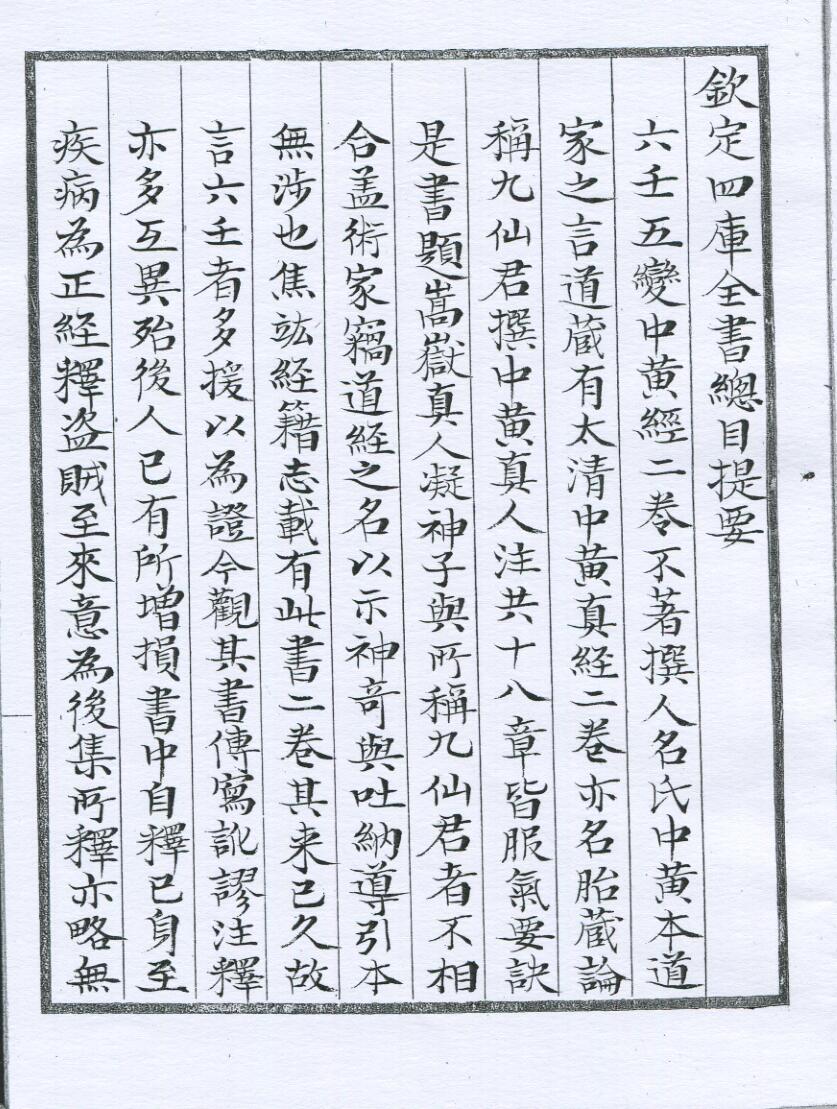 欽定四庫全書總目提要
六壬五變中黄經二卷不著撰人名氏中黄本道
家之言道蔵有太清中黄真経二卷亦名胎蔵論
稱九仙君撰中黄真人注共十八章皆服氣要訣
是書題嵩嶽真人凝神子與所稱九仙君者不相
合盖術家竊道経之名以示神竒與吐納導引本
無涉也焦竑経籍志載有此書二卷其来已久故
言六壬者多援以為證今觀其書傳寫訛謬注釋
亦多互異殆後人已有所增損書中自釋已身至
疾病為正経釋盗賊至來意為後集所釋亦略無